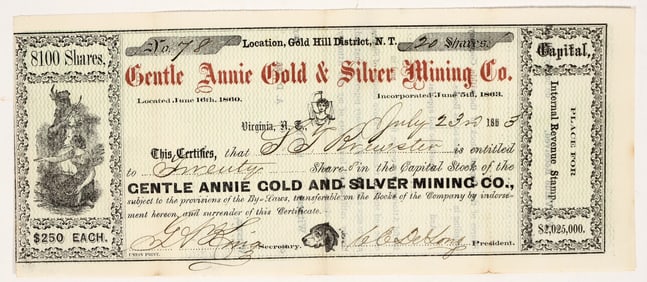 8100 Shares,
$250 EACH.
No. 78
Location, Gold Hill District, N. T.
20 Shares.
Gentle Annie Gold & Silver Mining Co.
Located June 16th, 1860.
Incorporated June 5th, 1863.
Virginia, N. T., July 23d 1863
This Certifies, that S T Brewster is entitled
to Twenty Shares in the Capital Stock of the
GENTLE ANNIE GOLD AND SILVER MINING CO.,
subject to the provisions of the By-Laws, transferable on the Books of the Company by indorse-
ment hereon, and surrender of this Certificate.
Secretary.
President.
UNION PRINT.
Capital,
PLACE FOR
Internal Revenue Stamp.
$2,025,000.